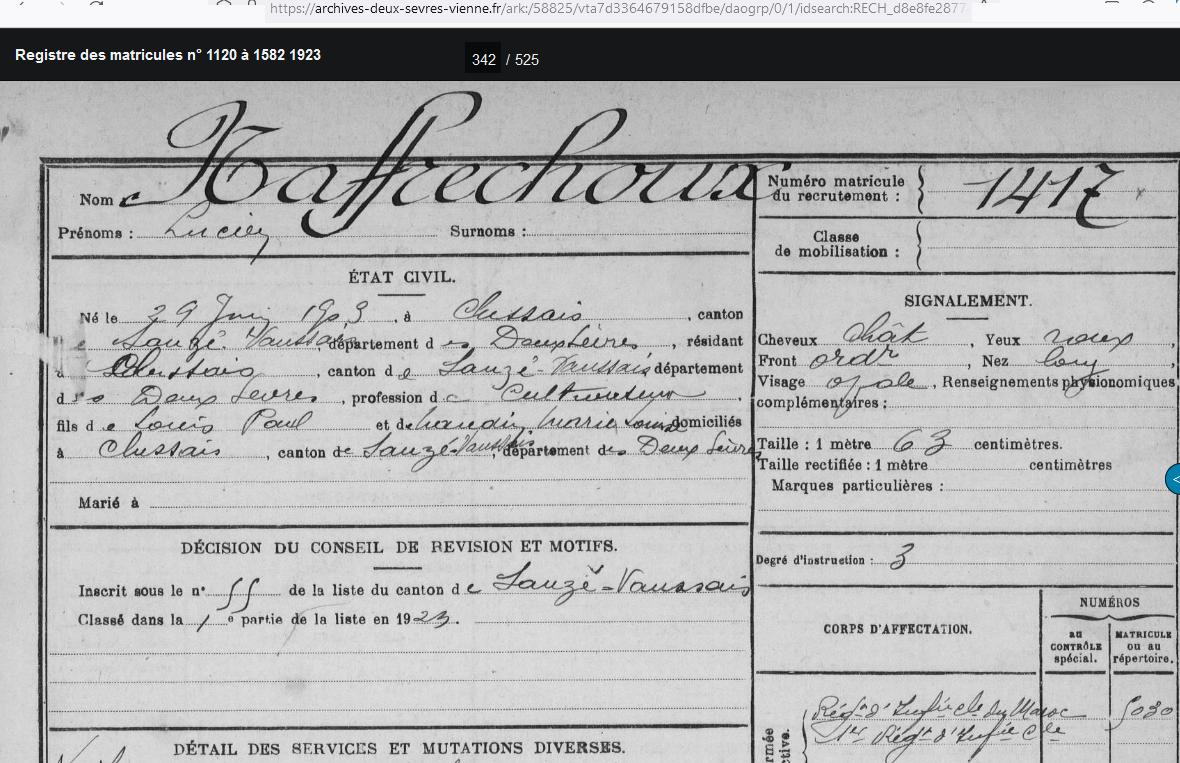 https://archives-deux-sevres-vienne.fr/ark:/58825/vta7d3364679158dfbe/daogrp/0/1/idsearch:RECH_d8e8fe2877
Registre des matricules n° 1120 à 1582 1923
342 / 525
Nom Naffrechoux
Prénoms : Lucien Surnoms :
Numéro matricule du recrutement : 1417
Classe de mobilisation :
ÉTAT CIVIL.
Né le 29 Juin 1903, à Clussais, canton
Sauzé Vaussais, département des Deux Sèvres, résidant
à Clussais, canton de Sauzé-Vaussais, département
des Deux Sevres, profession de Cultivateur,
fils de Louis Paul et de Marie domiciliés
à Clussais, canton de Sauzé-Vaussais, département des Deux Sèvres
Marié à
SIGNALEMENT.
Cheveux chât, Yeux roux,
Front ordr, Nez
Visage ovale, Renseignements physionomiques
complémentaires :
Taille : 1 mètre 63 centimètres.
Taille rectifiée : 1 mètre centimètres
Marques particulières :
DÉCISION DU CONSEIL DE REVISION ET MOTIFS.
Inscrit sous le n° de la liste du canton de Sauzé-Vaussais
Classé dans la 1e partie de la liste en 1923.
Degré d'instruction : 3
CORPS D'AFFECTATION.
NUMÉROS
au CONTRÔLE spécial.
MATRICULE ou au répertoire.
Régt d'Infie Cle du Maroc 5030
Régt d'Infie Cle
DÉTAIL DES SERVICES ET MUTATIONS DIVERSES.